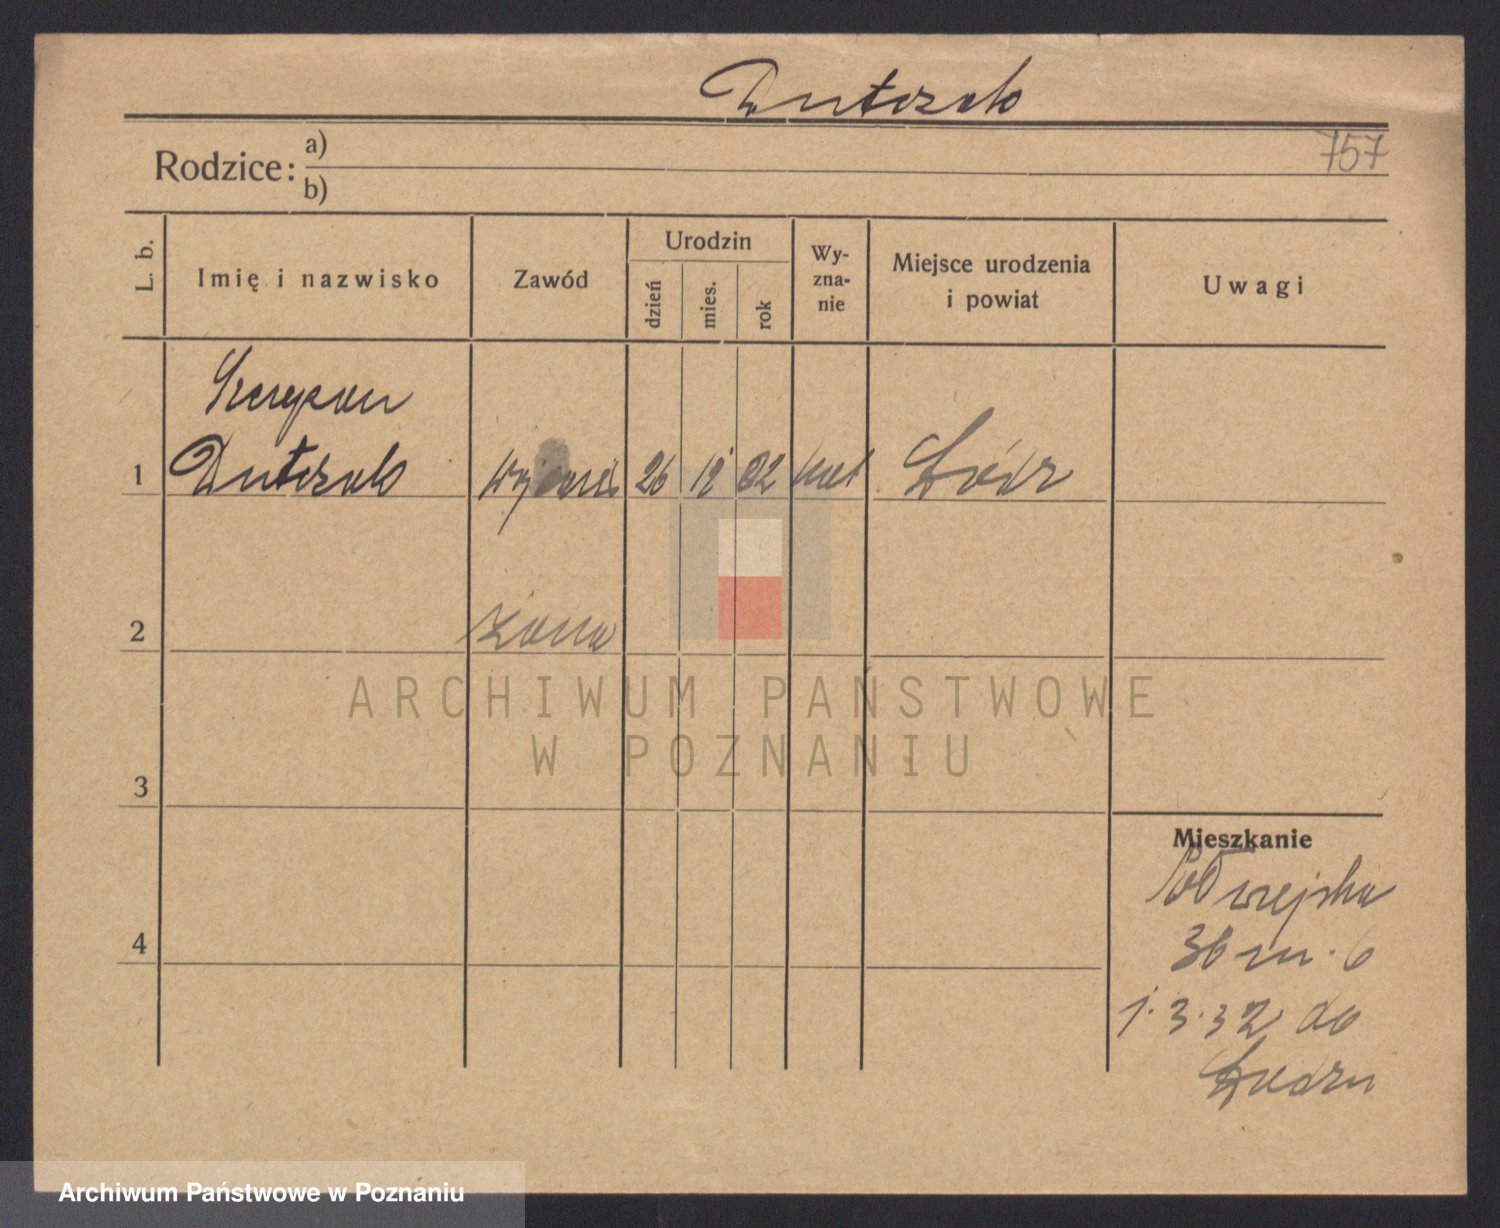 Dutczak
757
Rodzice: a)
b)
L. b.
Imię i nazwisko
Zawód
Urodzin
dzień
mies.
rok
Wy-
zna-
nie
Miejsce urodzenia
i powiat
Uwagi
Szczepan
1 Dutczak 26 12 02 kat Łódź
2 żona
ARCHIWUM PAŃSTWOWE
W POZNANIU
3
Mieszkanie
4
36 m. 6
1.3.32 do
Łodzi
Archiwum Państwowe w Poznaniu